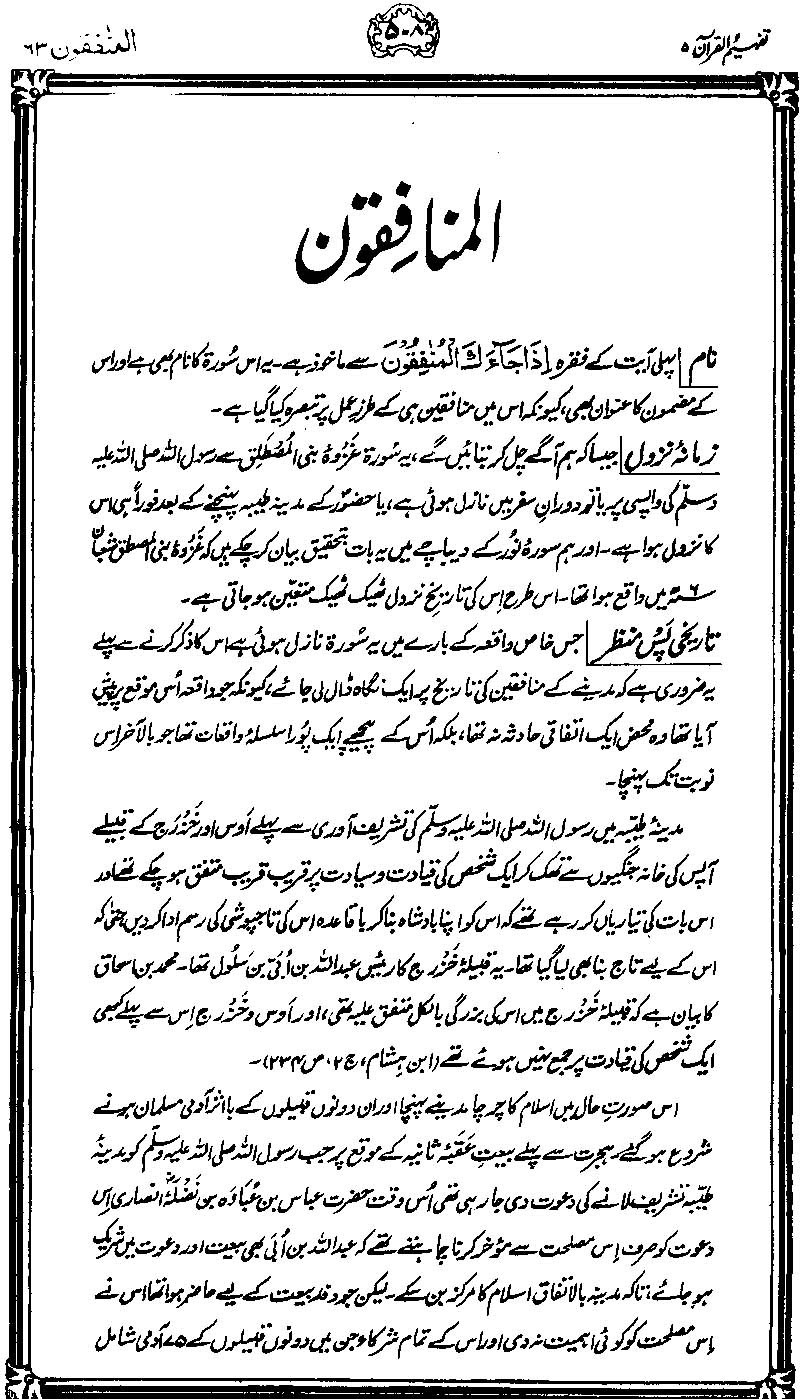 تفہیم القرآن ۵
۵۰۸
المنٰفقون ۶۳
المنافِقون
نام پہلی آیت کے فقرہ اِذَا جَآءَكَ الْمُنٰفِقُوْنَ سے ماخوذ ہے۔ یہ اس سُورۃ کا نام بھی ہے اور اس
کے مضمون کا عنوان بھی، کیونکہ اس میں منافقین ہی کے طرزِ عمل پر تبصرہ کیا گیا ہے۔
زمانۂ نزول جیسا کہ ہم آگے چل کر بتائیں گے، یہ سُورۃ غزوۂ بنی المُصْطَلِق سے رسول اللہ صلی اللہ علیہ
وسلّم کی واپسی پر یا تو دورانِ سفر میں نازل ہوئی ہے، یا حضورؐ کے مدینۂ طیبہ پہنچنے کے بعد فوراً ہی اس
کا نزول ہوا ہے۔ اور ہم سورۂ نُور کے دیباچے میں یہ بات بتحقیق بیان کر چکے ہیں کہ غزوۂ بنی المصطلق شعبان
۶ ؁ میں واقع ہوا تھا۔ اس طرح اِس کی تاریخِ نزول ٹھیک ٹھیک متعیّن ہو جاتی ہے۔
تاریخی پسِ منظر جس خاص واقعہ کے بارے میں یہ سُورۃ نازل ہوئی ہے اس کا ذکر کرنے سے پہلے
یہ ضروری ہے کہ مدینے کے منافقین کی تاریخ پر ایک نگاہ ڈال لی جائے، کیونکہ جو واقعہ اُس موقع پر پیش
آیا تھا وہ محض ایک اتفاقی حادثہ نہ تھا، بلکہ اُس کے پیچھے ایک پُورا سلسلۂ واقعات تھا جو بالآخر اِس
نوبت تک پہنچا۔
مدینۂ طیّبہ میں رسول اللہ صلی اللہ علیہ وسلّم کی تشریف آوری سے پہلے اَوس اور خَزْرَج کے قبیلے
آپس کی خانہ جنگیوں سے تھک کر ایک شخص کی قیادت و سیادت پر قریب قریب متفق ہو چکے تھے اور
اس بات کی تیاریاں کر رہے تھے کہ اس کو اپنا بادشاہ بنا کر باقاعدہ اس کی تاجپوشی کی رسم ادا کر دیں حتیٰ کہ
اس کے لیے تاج بنا بھی لیا گیا تھا۔ یہ قبیلۂ خَزْرَج کا رئیس عبداللہ بن اُبَیّ بن سَلُول تھا۔ محمد بن اسحاق
کا بیان ہے کہ قبیلۂ خَزْرَج میں اس کی بزرگی بالکل متفق علیہ تھی، اور اَوس و خَزْرَج اِس سے پہلے کبھی
ایک شخص کی قیادت پر جمع نہیں ہوئے تھے (ابن ہشام، ج ۲، ص ۲۳۴)۔
اس صورتِ حال میں اسلام کا چرچا مدینے پہنچا اور ان دونوں قبیلوں کے با اثر آدمی مسلمان ہونے
شروع ہو گئے۔ ہجرت سے پہلے بیعتِ عَقَبۂ ثانیہ کے موقع پر جب رسول اللہ صلی اللہ علیہ وسلّم کو مدینۂ
طیّبہ تشریف لانے کی دعوت دی جا رہی تھی اُس وقت حضرت عباس بن عُبَادَہ بن نَضْلَۂ انصاریؓ اِس
دعوت کو صرف اِس مصلحت سے مؤخر کرنا چاہتے تھے کہ عبداللہ بن اُبَی بھی بیعت اور دعوت میں شریک
ہو جائے، تاکہ مدینہ بالاتفاق اسلام کا مرکز بن سکے۔ لیکن جو وفد بیعت کے لیے حاضر ہوا تھا اس نے
اِس مصلحت کو کوئی اہمیت نہ دی اور اس کے تمام شرکاء، جن میں دونوں قبیلوں کے ۷۵ آدمی شامل